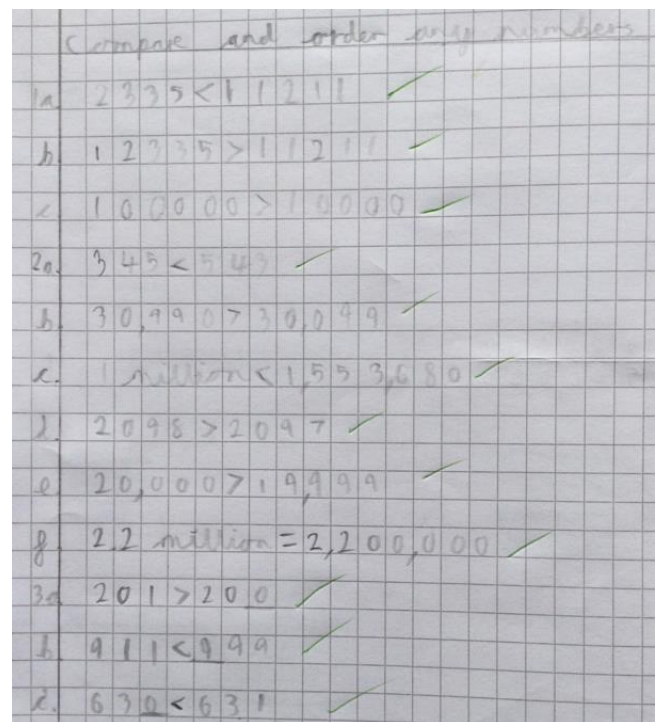 Compare and order any numbers
1a 2335 < 11211
b 12335 > 11211
c 100000 > 10000
2a. 345 < 543
b 30,990 > 30,099
c. 1 million < 1,553,680
d. 2098 > 2097
e 20,000 > 19,999
f 22 million = 2,200,000
3a 201 > 200
b 911 < 999
c. 630 < 631